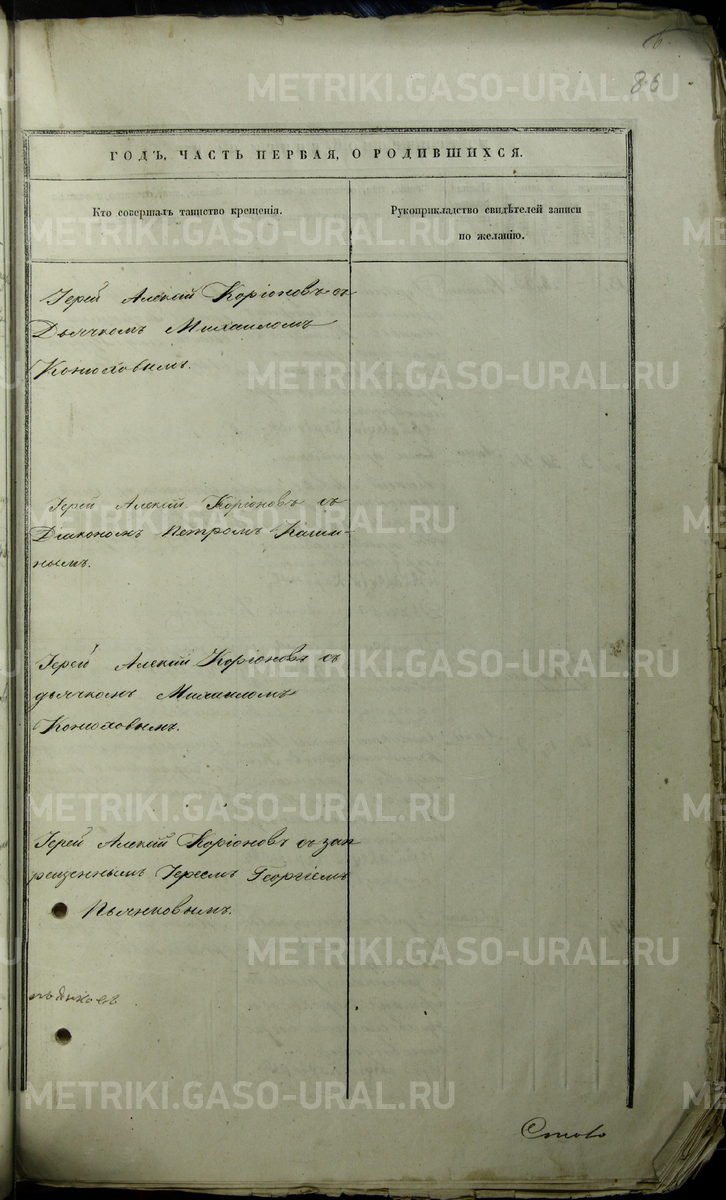 86
ГОДЪ, ЧАСТЬ ПЕРВАЯ, О РОДИВШИХСЯ.
Кто совершалъ таинство крещенія.
Рукоприкладство свидѣтелей записи
по желанію.
Іерей Алексій Коріоновъ съ
Дьячкомъ Михаиломъ
Конюховымъ.
Іерей Алексій Коріоновъ съ
Діакономъ Петромъ Кали-
нымъ.
Іерей Алексій Коріоновъ съ
дьячкомъ Михаиломъ
Конюховымъ.
Іерей Алексій Коріоновъ съ зап
рещеннымъ Іереемъ Георгіемъ
Пьянковымъ.
METRIKI.GASO-URAL.RU